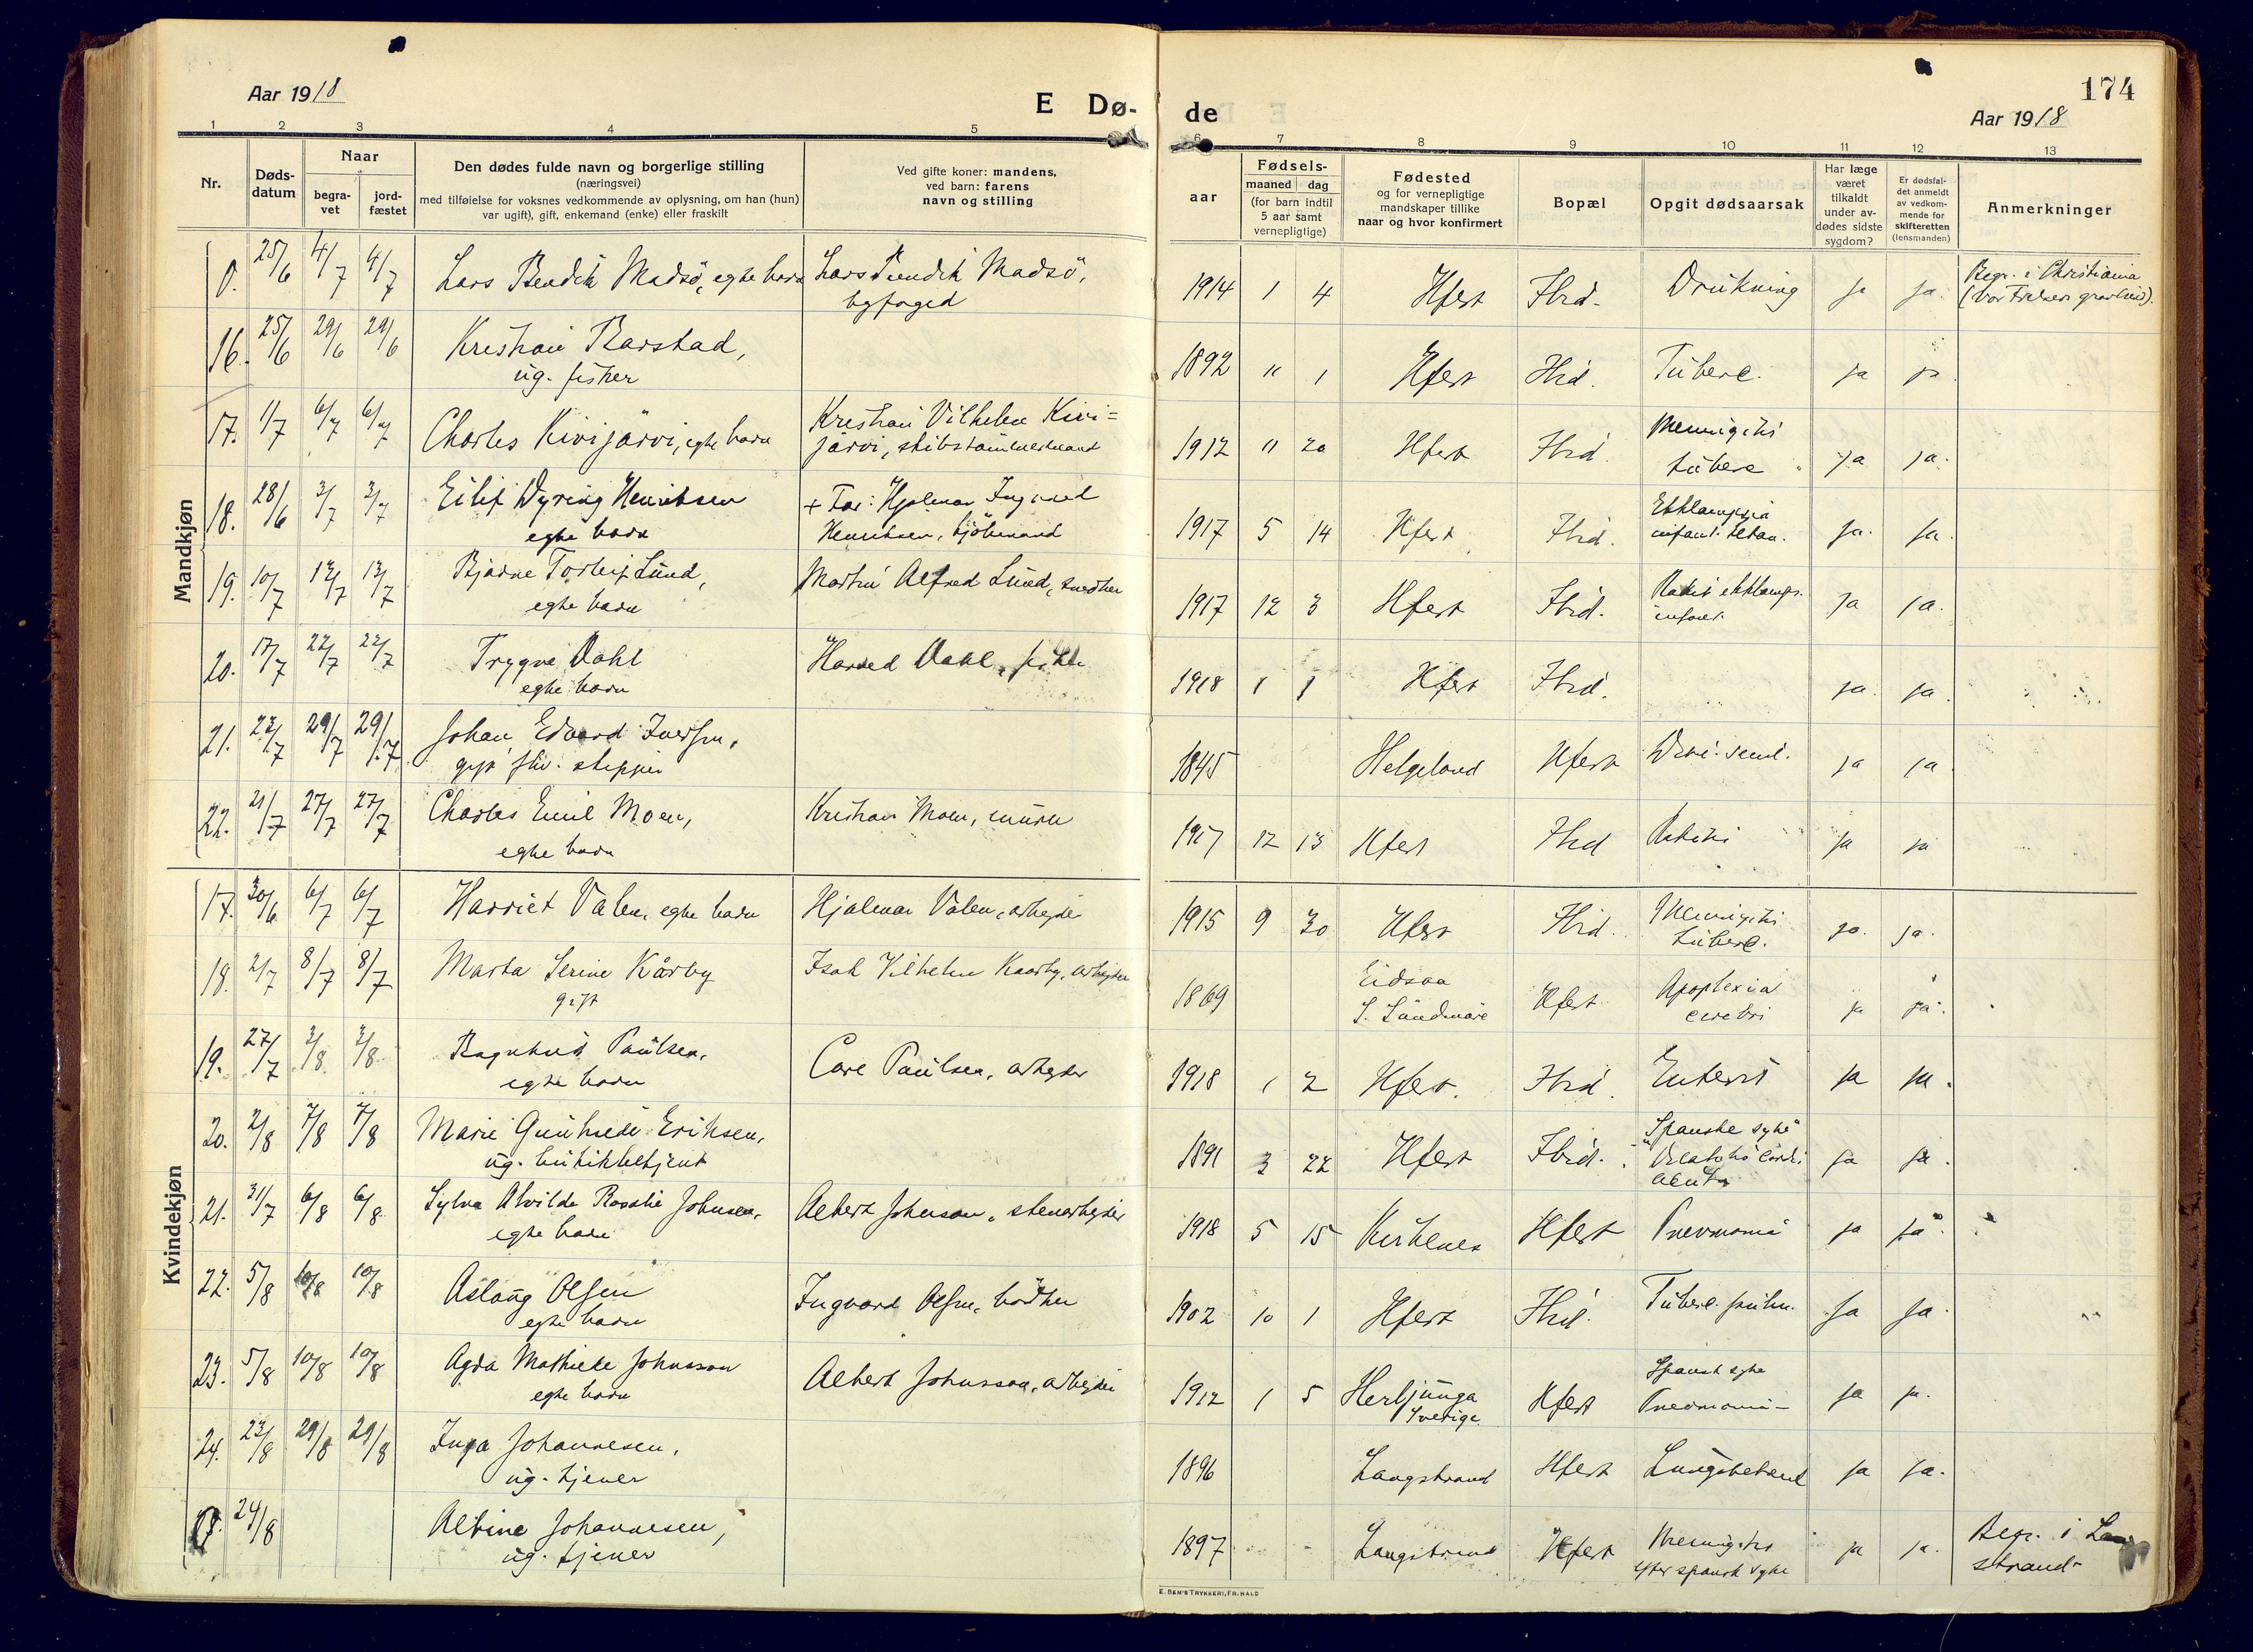 Aar 1918
E Dø-
de
174
Aar 1918
1 2 3 4 5 6 7 8 9 10 11 12 13
Nr.
Døds-
datum
Naar
begra-
vet
jord-
fæstet
Den dødes fulde navn og borgerlige stilling
(næringsvei)
med tilføielse for voksnes vedkommende av oplysning, om han (hun)
var ugift), gift, enkemand (enke) eller fraskilt
Ved gifte koner: mandens,
ved barn: farens
navn og stilling
Fødsels-
aar
maaned dag
(for barn indtil
5 aar samt
vernepligtige)
Fødested
og for vernepligtige
mandskaper tillike
naar og hvor konfirmert
Bopæl
Opgit dødsaarsak
Har læge
været
tilkaldt
under av-
dødes sidste
sygdom?
Er dødsfal-
det anmeldt
av vedkom-
mende for
skifteretten
(lensmanden)
Anmerkninger
Mandkjøn
0. 25/6 4/7 4/7 Lars Bendik Madsö, egte barn Lars Bendik Madsö, 1914 1 4 Hfest Ibid. Drukning ja ja. Begr. i Christiania
byfoged (Vor Frelsers gravlund).
16. 25/6 29/6 29/6 Kristian Barstad, 1892 11 1 Hfest Ibid. Tuberc. ja ja
ug. fisker
17. 1/7 6/7 6/7 Charles Kivijärvi, egte barn Kristian Vilhelm Kivi= 1912 11 20 Hfest Ibid. Meningitis ja ja.
järvi, skibstømmermand tuberc.
18. 28/6 3/7 3/7 Eilif Dyring Henriksen + Far: Hjalmar Ingvard 1917 5 14 Hfest Ibid. Eklampsia ja. ja.
egte barn Henriksen, sjömand infant. tetan.
19. 10/7 13/7 13/7 Bjarne Torleif Lund, Martin Alfred Lund, snedker 1917 12 3 Hfest Ibid. Rakit eklamps. ja ja.
egte barn infant.
20. 17/7 22/7 22/7 Trygve Dahl Harald Dahl, fisker 1918 1 1 Hfest Ibid. ja. ja.
egte barn
21. 23/7 29/7 29/7 Johan Edvard Iversen, 1845 Helgeland Hfest ja ja
gift fhv. skipper
22. 21/7 27/7 27/7 Charles Emil Moen, Kristian Moen, murer 1917 12 13 Hfest Ibid Rakitis ja ja
egte barn
Kvindekjøn
17. 30/6 6/7 6/7 Harriet Valen, egte barn Hjalmar Valen, arbeider 1915 9 30 Hfest Ibid. Meningitis ja. ja.
tuberc.
18. 2/7 8/7 8/7 Marta Serine Kårby Isak Vilhelm Kaarby, arbeider 1869 Eidsaa Hfest Apoplexia ja ja.
gift S. Søndmøre cerebri
19. 27/7 3/8 3/8 Ragnhild Paulsen, Carl Paulsen, arbeider 1918 1 2 Hfest. Ibid. Enterit ja ja.
egte barn
20. 2/8 7/8 7/8 Marie Gunhilde Eriksen, 1891 3 22 Hfest Ibid. "Spanske syke" ja ja.
ug. butikbetjent Dilatatio cordis
acuta
21. 31/7 6/8 6/8 Sylva Alvilde Rosalie Johnsen, Albert Johnson, stenarbeider 1918 5 15 Kirkenes Hfest Pneumoni ja ja.
egte barn
22. 5/8 10/8 10/8 Aslaug Olsen Ingvard Olsen, bödker 1902 10 1 Hfest Ibid. Tuberc. pulm. ja ja.
egte barn
23. 5/8 10/8 10/8 Agda Mathilde Johnsson Albert Johnsson, arbeider 1912 1 5 Herljunga Hfest Spansk syke ja ja.
egte barn Sverige Pneumoni
24. 23/8 29/8 29/8 Inga Johannesen, 1896 Langstrand Hfest Lungebetænd ja ja.
ug. tjener
24/8 Albine Johannesen, 1897 Langstrand Hfest Meningitis ja ja. Begr. i Lang
ug. tjener efter spansk syke strand
E. SEM'S TRYKKERI, FR. HALD